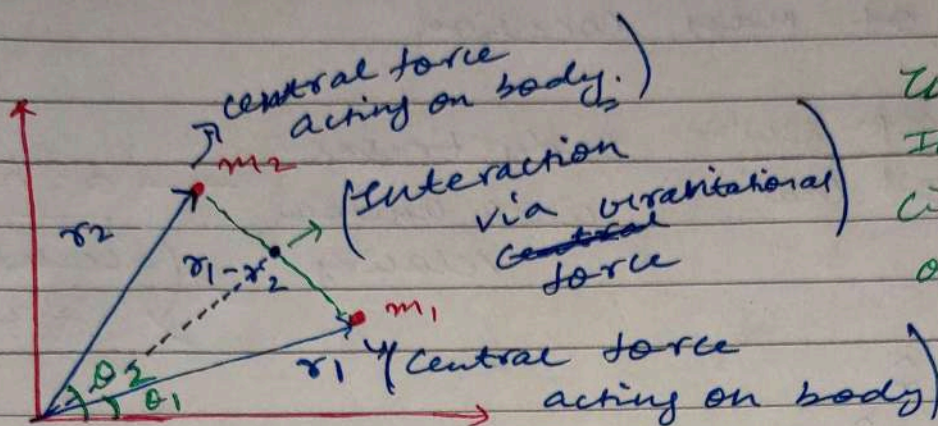 central force
acting on body.)
m2
(Interaction
via Gravitational
force
r2
r1 - r2
m1
r1
(Central force
acting on body)
θ2
θ1